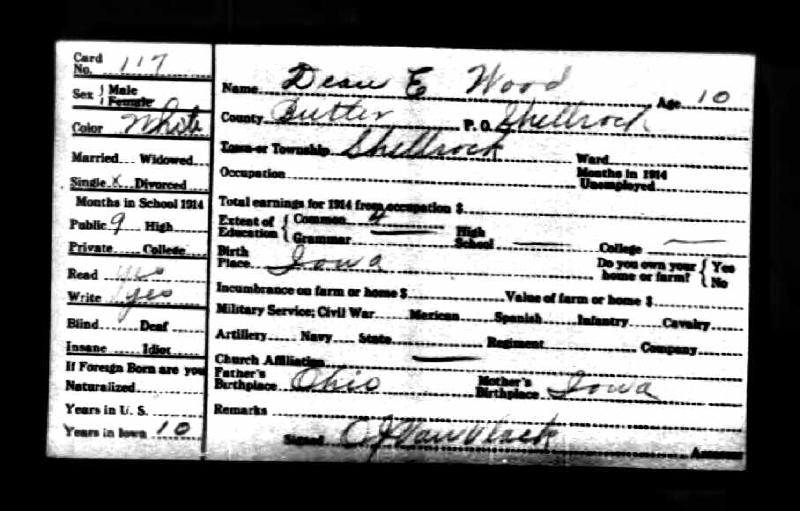 Card No. 117
Sex Male Female
Color White
Married Widowed
Single X Divorced
Months in School 1914
Public 9 High
Private College
Read yes
Write yes
Blind Deaf
Insane Idiot
If Foreign Born are you
Naturalized
Years in U. S.
Years in Iowa 10
Name Dean E Wood Age 10
County Butler P. O. Shellrock
Town or Township Shellrock Ward
Occupation Months in 1914 Unemployed
Total earnings for 1914 from occupation $
Extent of Education Common 4 Grammar High School — College —
Birth Place Iowa Do you own your home or farm? Yes No
Incumbrance on farm or home $ Value of farm or home $
Military Service; Civil War Mexican Spanish Infantry Cavalry
Artillery Navy State Regiment Company
Church Affiliation —
Father's Birthplace Ohio Mother's Birthplace Iowa
Remarks
Signed C J Van Vlack Assessor